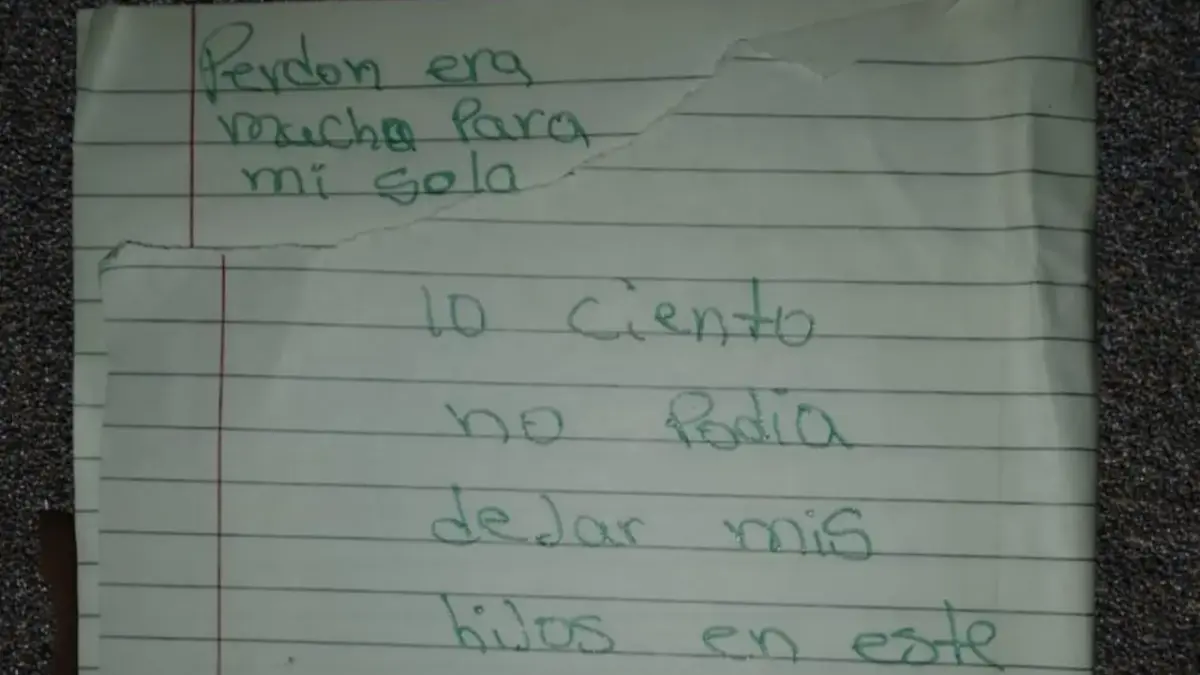 Perdon era
mucho Para
mi sola
lo ciento
no Podia
deJar mis
hiJos en este